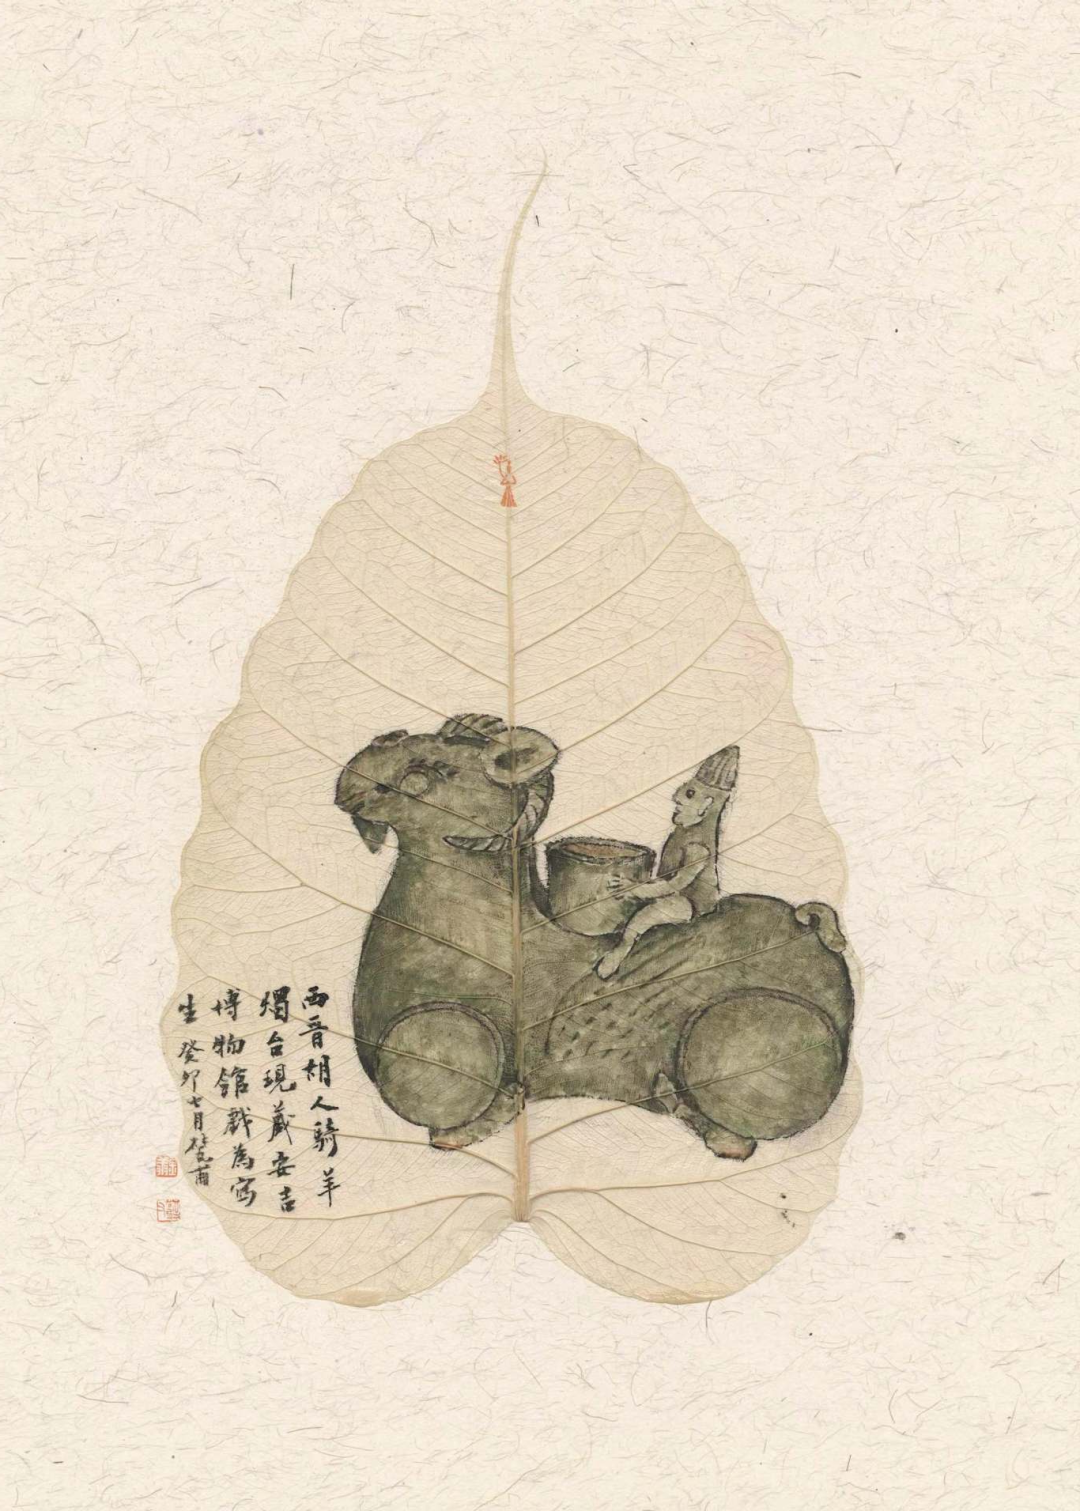 西晋胡人騎羊
燭台現藏安吉
博物館戲為寫
生癸卯七月甫